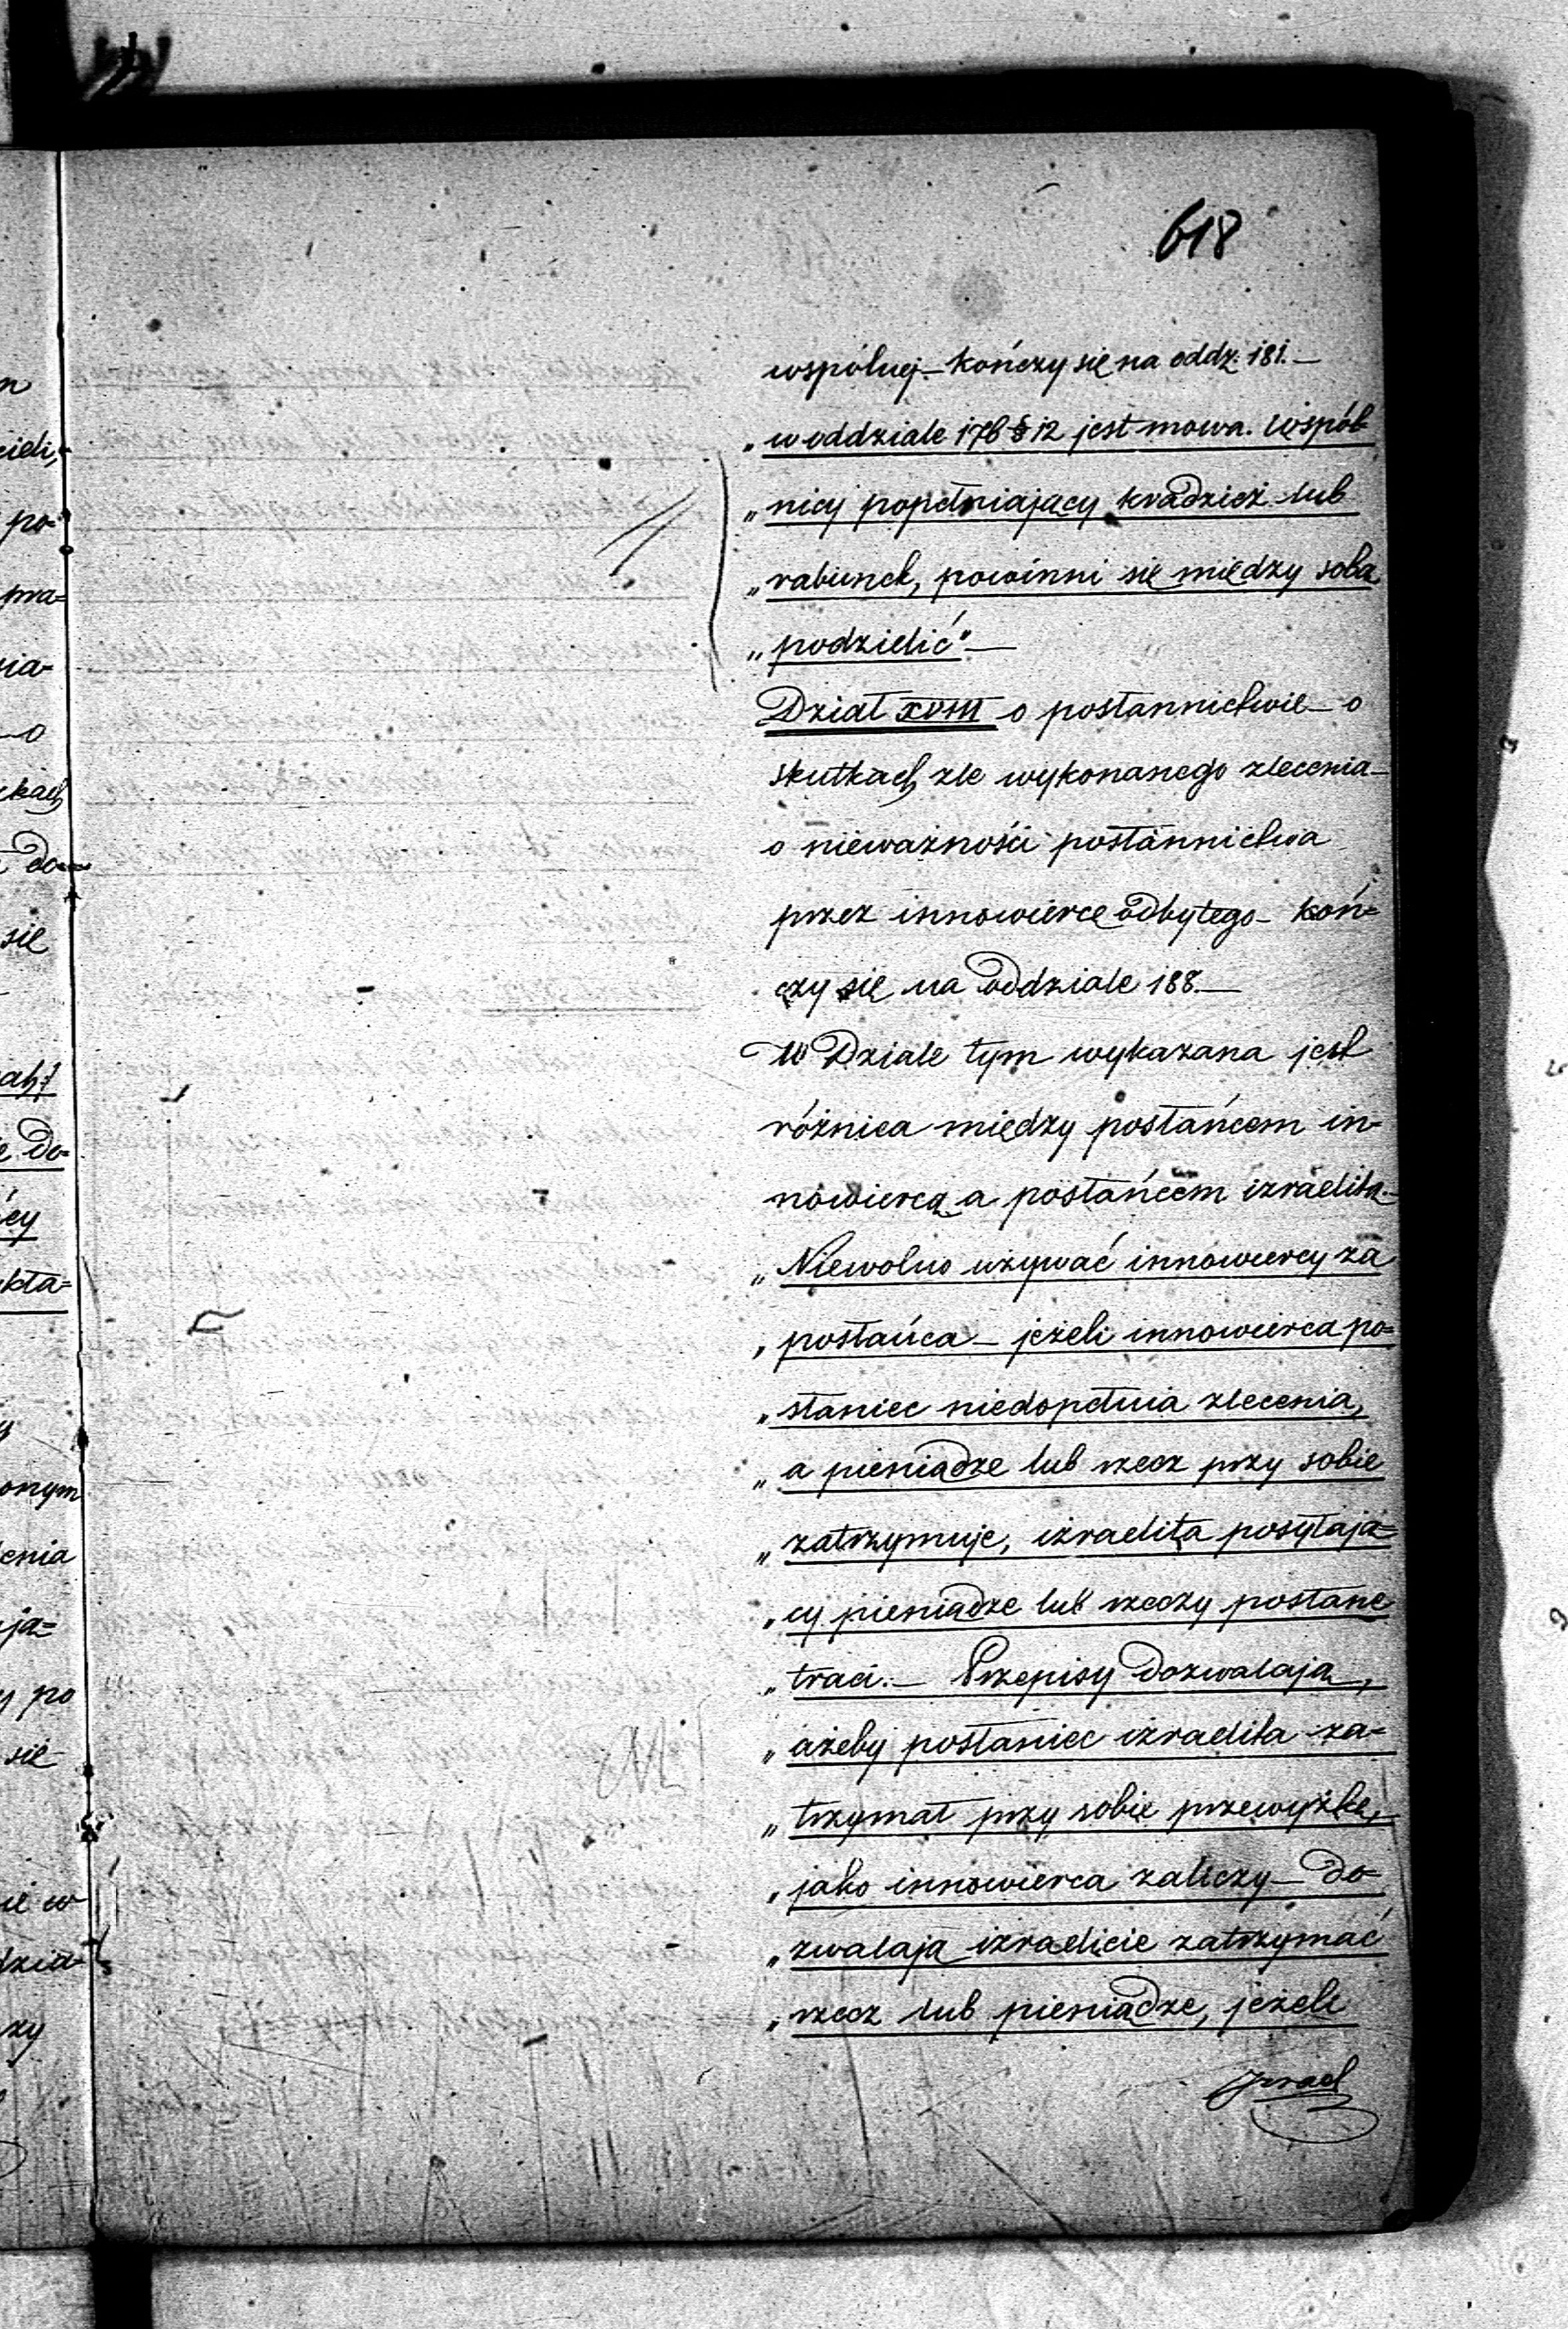 618
wspólnej — kończy się na oddz. 181. —
„w oddziale 176 § 12 jest mowa. Wspól-
„nicy popełniający kradzież lub
„rabunek, powinni się między sobą
„podzielić" —
Dział XVIII o posłannictwie — o
skutkach źle wykonanego zlecenia —
o nieważności posłannictwa
przez innowiercę odbytego — koń=
czy się na oddziale 188. —
W Dziale tym wykazana jest
różnica między posłańcem in-
nowiercą a posłańcem izraelitą. —
„Niewolno używać innowiercy za
„posłańca — jeżeli innowierca po=
„słaniec niedopełnia zlecenia,
„a pieniądze lub rzecz przy sobie
„zatrzymuje, izraelita posyłają=
„cy pieniądze lub rzeczy posłane
„traci. — Przepisy dozwalają,
„ażeby posłaniec izraelita za=
„trzymał przy sobie przewyżkę,
„jako innowierca zaliczy — do=
„zwalają izraelicie zatrzymać
„rzecz lub pieniądze, jeżeli
Izrael
ciel i,
po=
pra=
nia=
— o
kach
do=
się
do=
cy
kła=
onym
enia
ja=
po
się
ie w
dzia=
zy